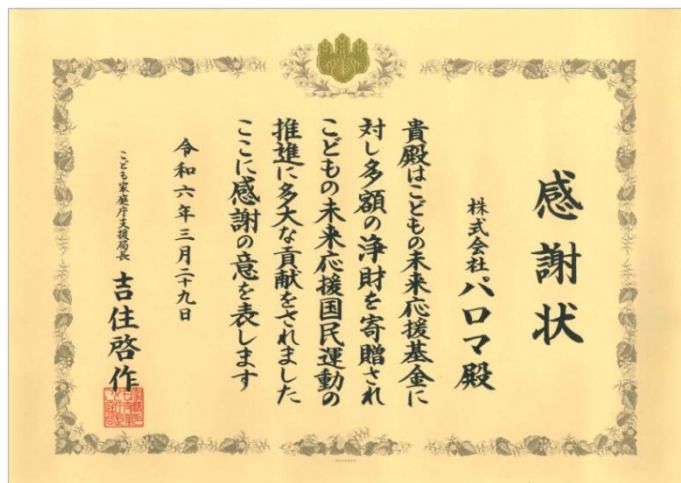 感謝状
株式会社パロマ殿
貴殿はこどもの未来応援基金に
対し多額の浄財を寄贈され
こどもの未来応援国民運動の
推進に多大な貢献をされました
ここに感謝の意を表します
令和六年三月二十九日
こども家庭庁支援局長 吉住啓作